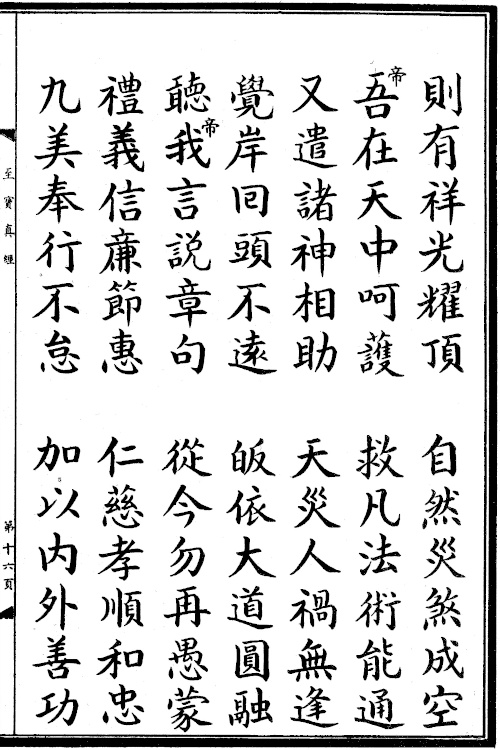 則有祥光耀頂　自然災煞成空
吾帝在天中呵護　救凡法術能通
又遣諸神相助　天災人禍無逢
覺岸回頭不遠　皈依大道圓融
聽我帝言說章句　從今勿再愚蒙
禮義信廉節惠　仁慈孝順和忠
九美奉行不怠　加以內外善功
至寶真經
第十六頁